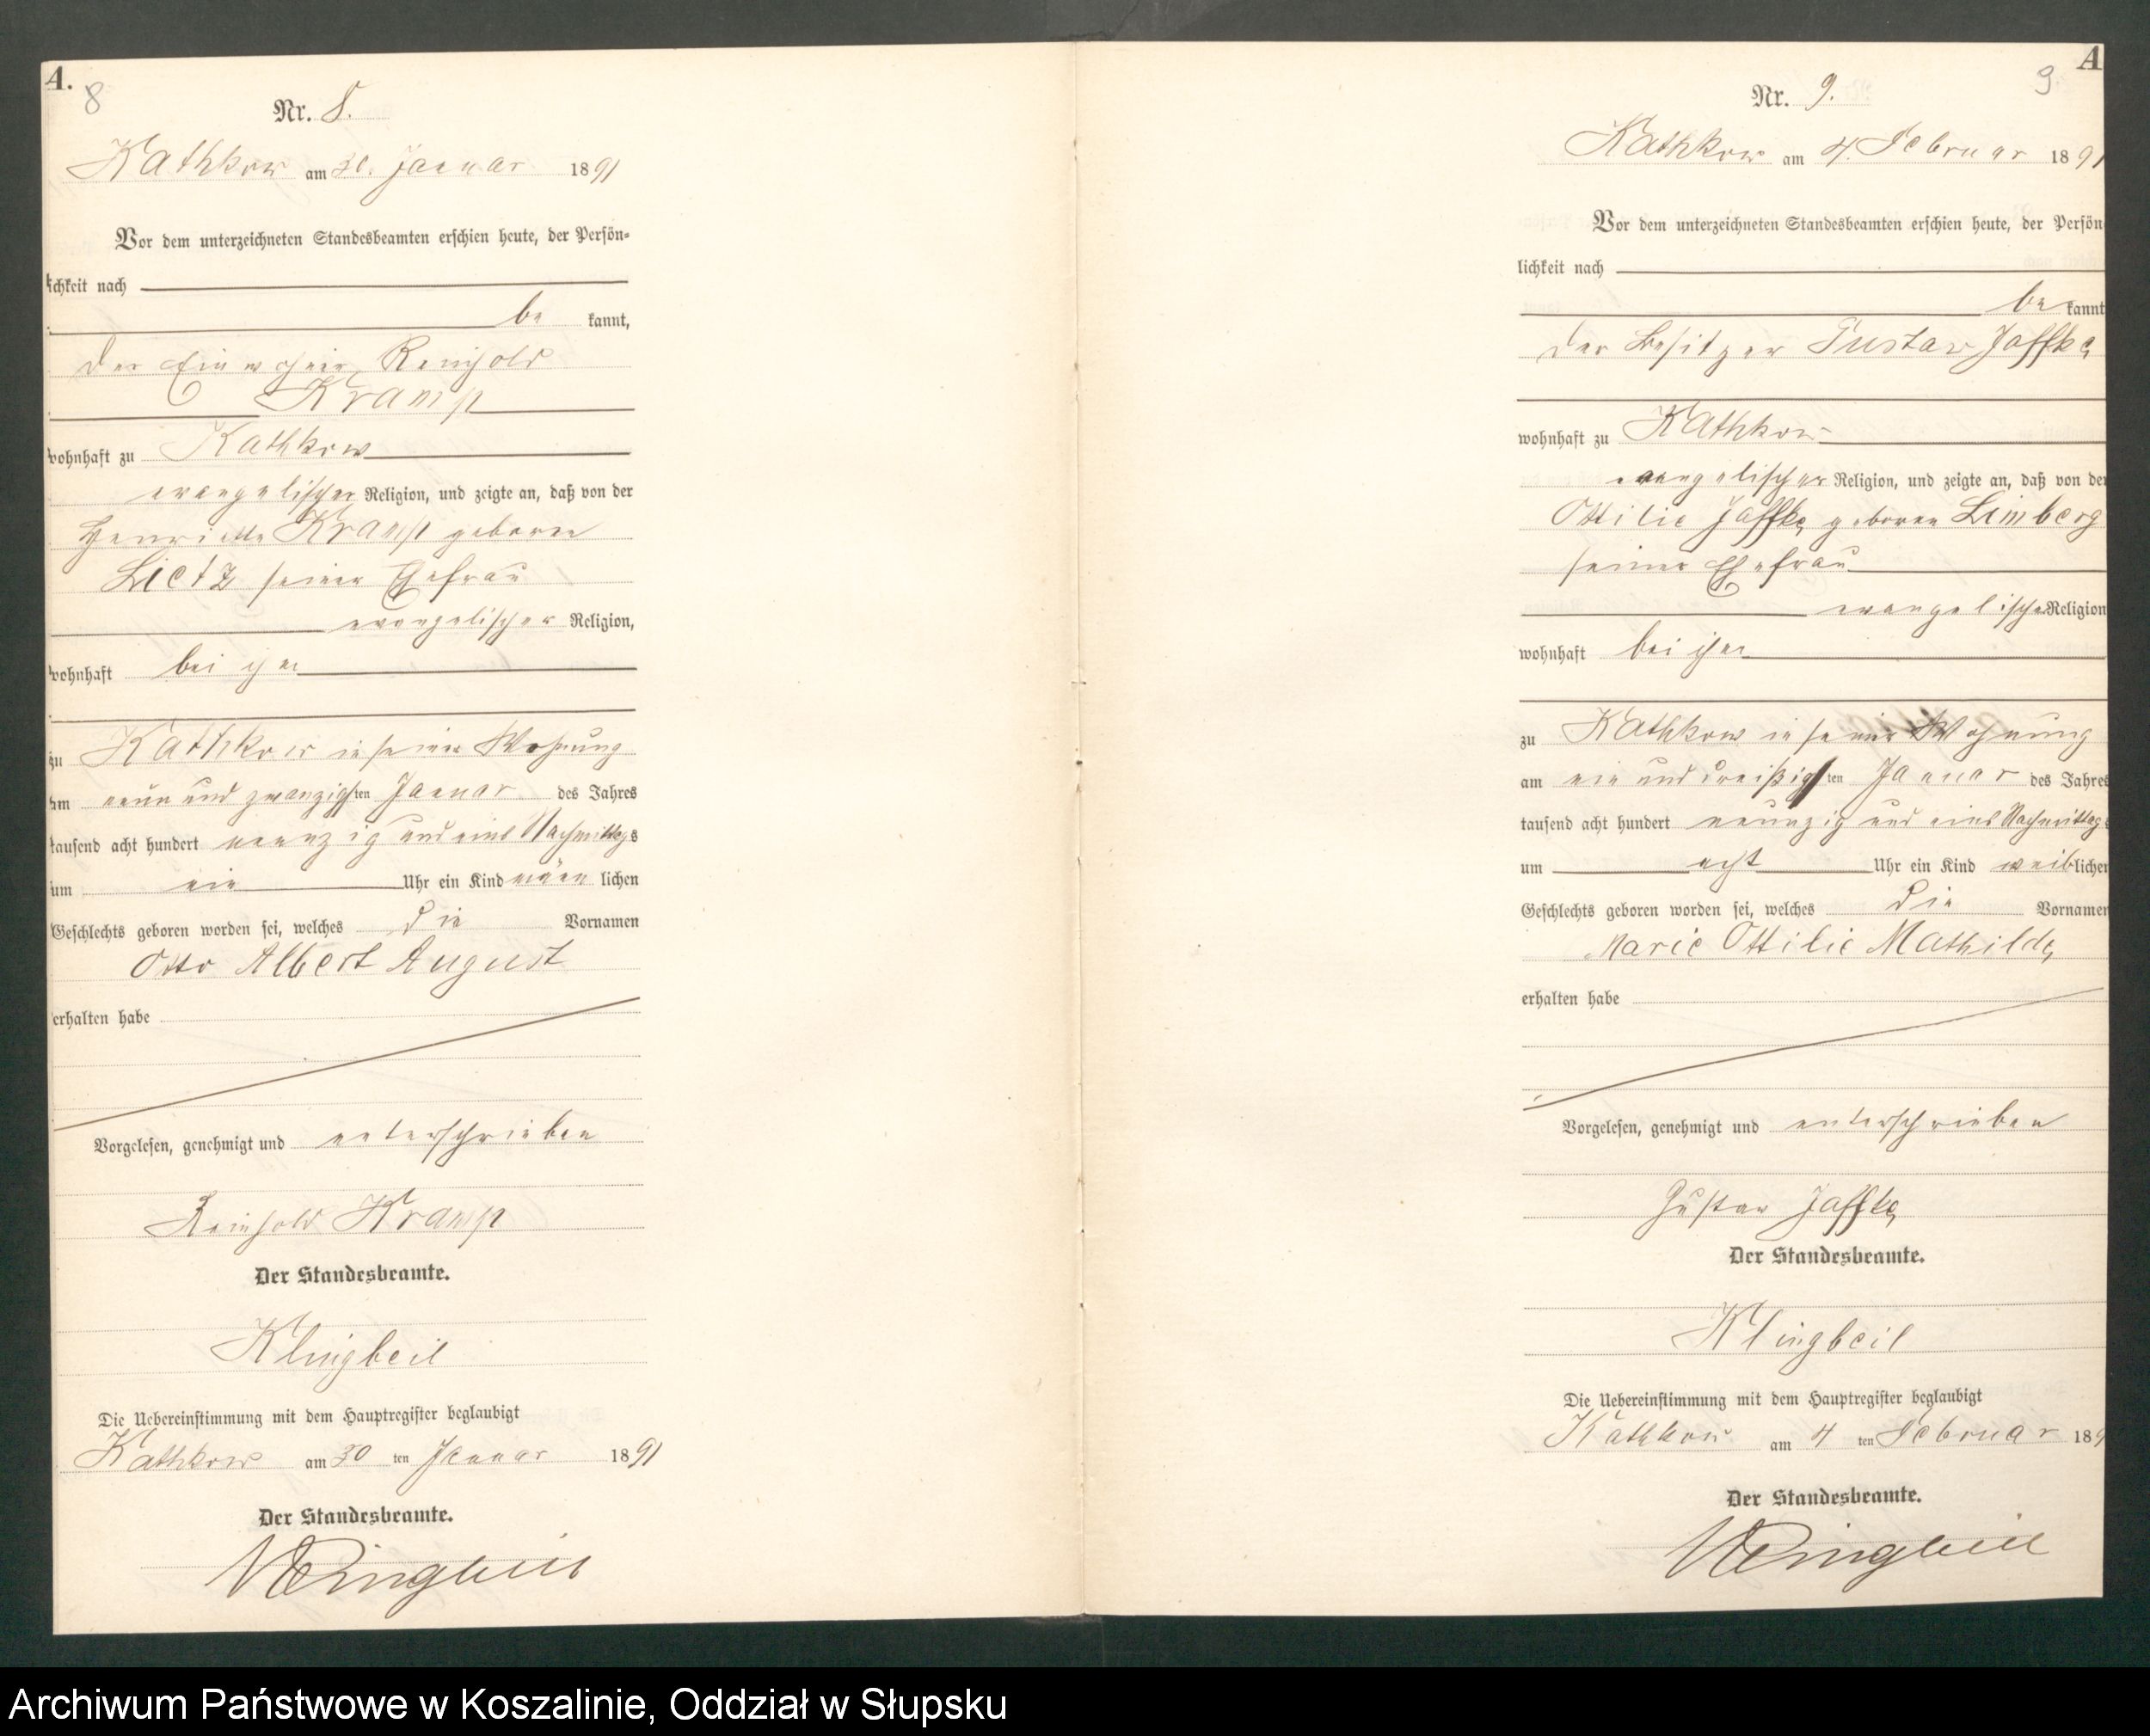 A.
8
Nr. 8.
Kathkow am 30. Januar 1891
Vor dem unterzeichneten Standesbeamten erschien heute, der Persön-
lichkeit nach
be kannt,
der Einwohner Reinhold
Kramp
wohnhaft zu Kathkow
evangelischer Religion, und zeigte an, daß von der
Henriette Kramp geboren
Lietz seiner Ehefrau
evangelischer Religion,
wohnhaft bei ihm
zu Kathkow in seiner Wohnung
am neun und zwanzigsten Januar des Jahres
tausend acht hundert neunzig und eins Nachmittags
um ein Uhr ein Kind männ lichen
Geschlechts geboren worden sei, welches die Vornamen
Otto Albert August
erhalten habe
Vorgelesen, genehmigt und unterschrieben
Reinhold Kramp
Der Standesbeamte.
Klingbeil
Die Uebereinstimmung mit dem Hauptregister beglaubigt
Kathkow am 30 ten Januar 1891
Der Standesbeamte.
Klingbeil
A
9
Nr. 9.
Kathkow am 4. Februar 1891
Vor dem unterzeichneten Standesbeamten erschien heute, der Persön
lichkeit nach
be kannt
der Besitzer Gustav Jaffke
wohnhaft zu Kathkow
evangelischer Religion, und zeigte an, daß von der
Ottilie Jaffke geboren Limberg
seiner Ehefrau
evangelischer Religion
wohnhaft bei ihm
zu Kathkow in seiner Wohnung
am ein und dreißigsten Januar des Jahres
tausend acht hundert neunzig und eins Nachmittags
um acht Uhr ein Kind weiblichen
Geschlechts geboren worden sei, welches die Vornamen
Marie Ottilie Mathilde
erhalten habe
Vorgelesen, genehmigt und unterschrieben
Gustav Jaffke
Der Standesbeamte.
Klingbeil
Die Uebereinstimmung mit dem Hauptregister beglaubigt
Kathkow am 4 ten Februar 189
Der Standesbeamte.
Klingbeil
Archiwum Państwowe w Koszalinie, Oddział w Słupsku